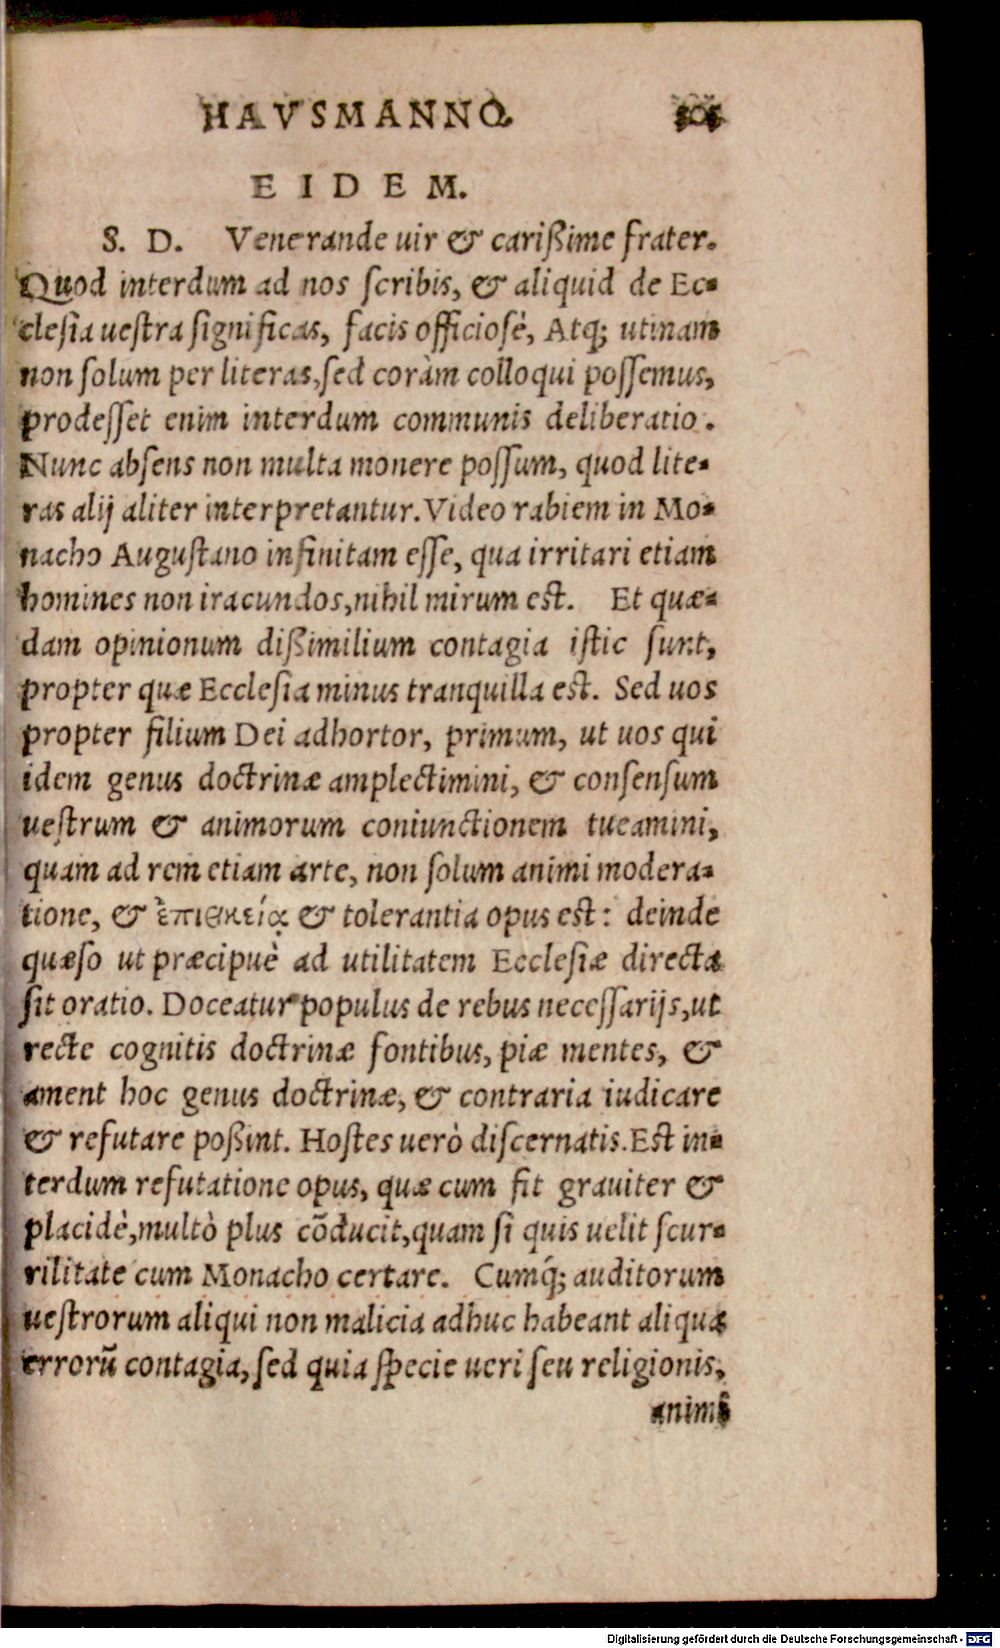 HAVSMANNO.
EIDEM.
S. D. Venerande uir & carißime frater.
Quod interdum ad nos ſcribis, & aliquid de Ec⸗
cleſia ueſtra ſignificas, facis officioſè, Atq; utinam
non ſolum per literas, ſed coràm colloqui poſſemus,
prodeſſet enim interdum communis deliberatio.
Nunc abſens non multa monere poſſum, quod lite⸗
ras alij aliter interpretantur. Video rabiem in Mo⸗
nacho Auguſtano infinitam eſſe, qua irritari etiam
homines non iracundos, nihil mirum est. Et quæ⸗
dam opinionum dißimilium contagia iſtic ſunt,
propter quæ Eccleſia minus tranquilla est. Sed uos
propter filium Dei adhortor, primum, ut uos qui
idem genus doctrinæ amplectimini, & conſenſum
ueſtrum & animorum coniunctionem tueamini,
quam ad rem etiam arte, non ſolum animi modera⸗
tione, & ἐπιεικείᾳ & tolerantia opus est: deinde
quæſo ut præcipuè ad utilitatem Eccleſiæ directa
ſit oratio. Doceatur populus de rebus neceſſarijs, ut
recte cognitis doctrinæ fontibus, piæ mentes, &
ament hoc genus doctrinæ, & contraria iudicare
& refutare poßint. Hoſtes uerò diſcernatis. Est in⸗
terdum refutatione opus, quæ cum fit grauiter &
placidè, multò plus cõducit, quam ſi quis uelit ſcur⸗
rilitate cum Monacho certare. Cumq́; auditorum
ueſtrorum aliqui non malicia adhuc habeant aliqua
errorũ contagia, ſed quia ſpecie ueri ſeu religionis,
Digitalisierung gefördert durch die Deutsche Forschungsgemeinschaft - DFG